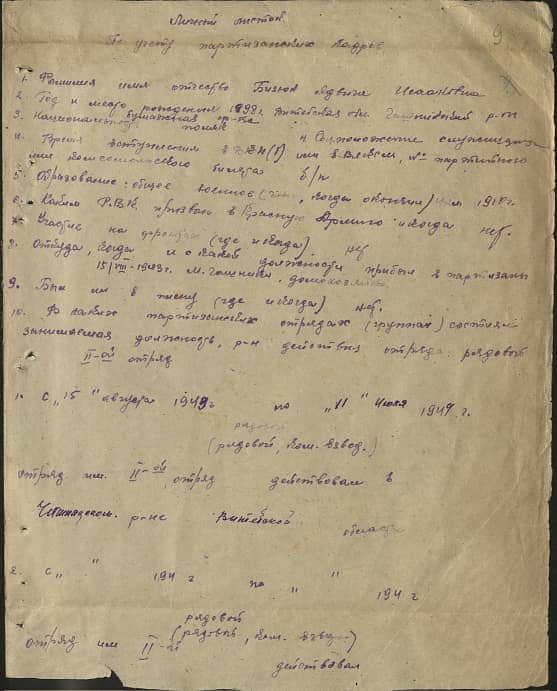 Личный листок
По учету партизанских кадров
9
1. Фамилия имя отчество Бизюк Ядвига Исааковна
2. Год и место рождения 1898 г. Витебская обл. р-н
3. Национальность 4 Соцположение служащая
4. Время вступления в ВКП(б) или в ВЛКСМ, № партийного
или комсомольского билета б/п
5. Образование: общее военное когда окончил 1918 г.
6. Каким Р.В.К. призван в Красную Армию и когда нет.
7. Участие на фронтах (где и когда) нет
8. Откуда, когда и с какой должности прибыл в партизаны
15/VIII-1943 г. м. домохозяйка
9. Был ли в плену (где и когда) нет.
10. В каких партизанских отрядах (группах) состоял
занимаемая должность, р-н действия отряда: рядовой
II-ой отряд
1. с „15" августа 1943 г по „11" июля 1944 г.
рядовой
(рядовой, ком. взвод.)
отряд им. II-ой отряд действовал в
р-не Витебской
области
2. с „ " 194 г по „ " 194 г
рядовой
(рядовой, ком. взвода)
отряд им II-ой
действовал